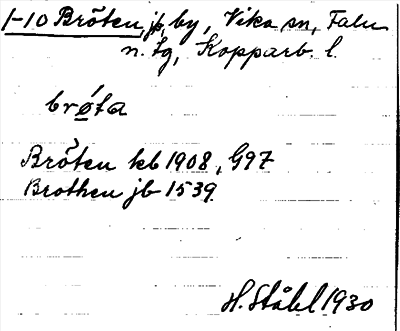 1-10 Bröten, jp, by, Vika sn, Falu
n. tg, Kopparb. l.
brǿta
Bröten kb 1908, G97
Brothen jb 1539.
H. Ståhl 1930